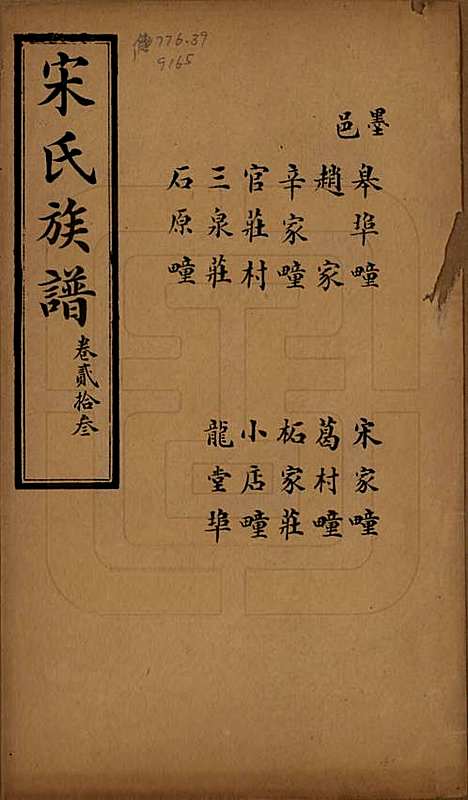 傳776.39
9165
墨邑
皋埠疃
趙家
辛家疃
官莊村
三泉莊
石原疃
宋家疃
葛村疃
柘家莊
小店疃
龍堂埠
宋氏族譜
卷貳拾叁